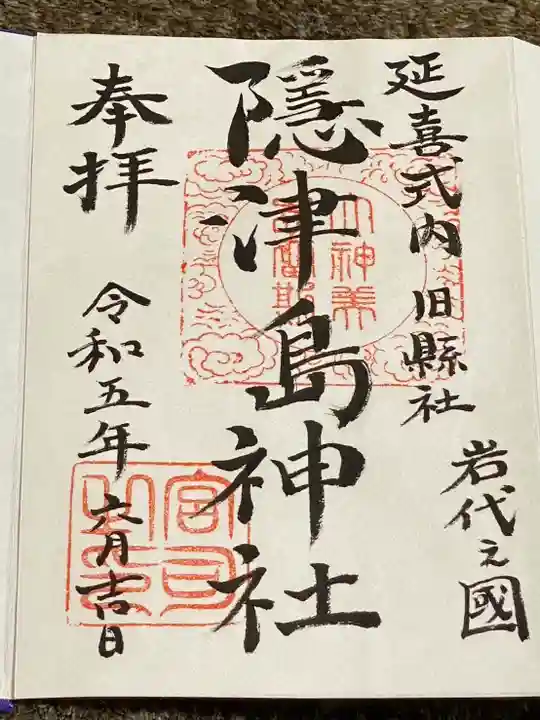 延喜式内 旧縣社
岩代之國
隠津島神社
奉拝
令和五年六月吉日